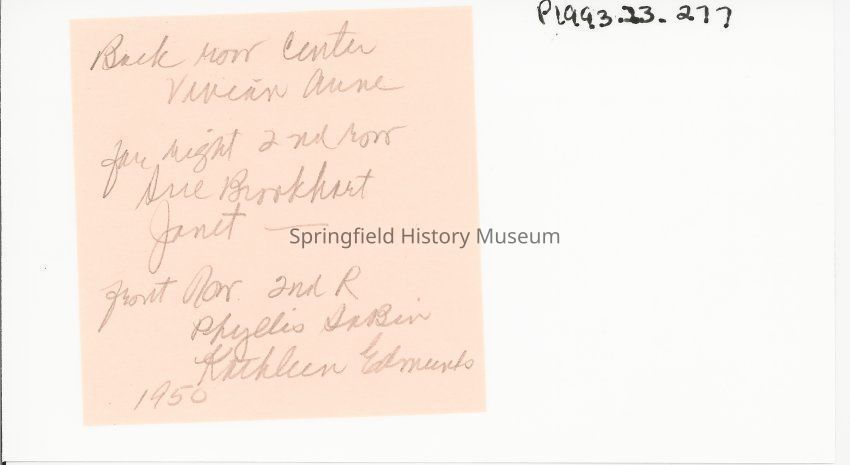 P1993.23.277
Back row Center
Vivian Anne
far right 2nd row
Sue Brookhart
Janet —
Springfield History Museum
front Row 2nd R
Phyllis SaBin
Kathleen Edmunds
1950